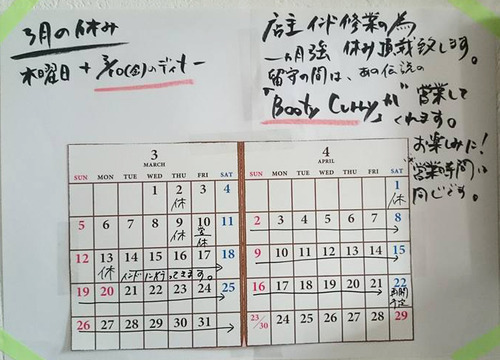 3月の休み
木曜日 + 3/10(金)のディナー
店主 インド修業の為
一ヵ月強 休み頂戴致します。
留守の間は、あの伝説の
「Booty Curry」が 営業して
くれます。
お楽しみに!
営業時間は
同じです。
3
MARCH
SUN MON TUE WED THU FRI SAT
1 2 3 4
休
5 6 7 8 9 10 11
休 休
12 13 14 15 16 17 18
休 インドに行ってきます。
19 20 21 22 23 24 25
26 27 28 29 30 31
4
APRIL
SUN MON TUE WED THU FRI SAT
1
休
2 3 4 5 6 7 8
9 10 11 12 13 14 15
16 17 18 19 20 21 22
予定
23/30 24 25 26 27 28 29